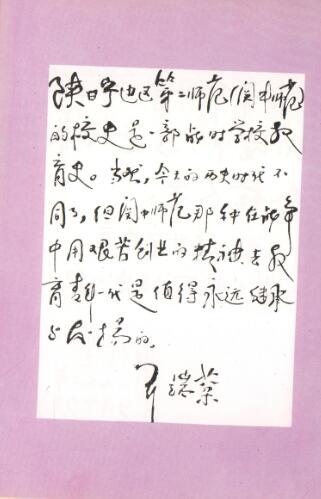 陕甘宁边区第二师范(关中师范)
的校史是一部战时学校教
育史。当然,今天的历史时代不
同了,但关中师范那种在战争
中用艰苦创业的精神去教
育青年一代是值得永远继承
与发扬的。